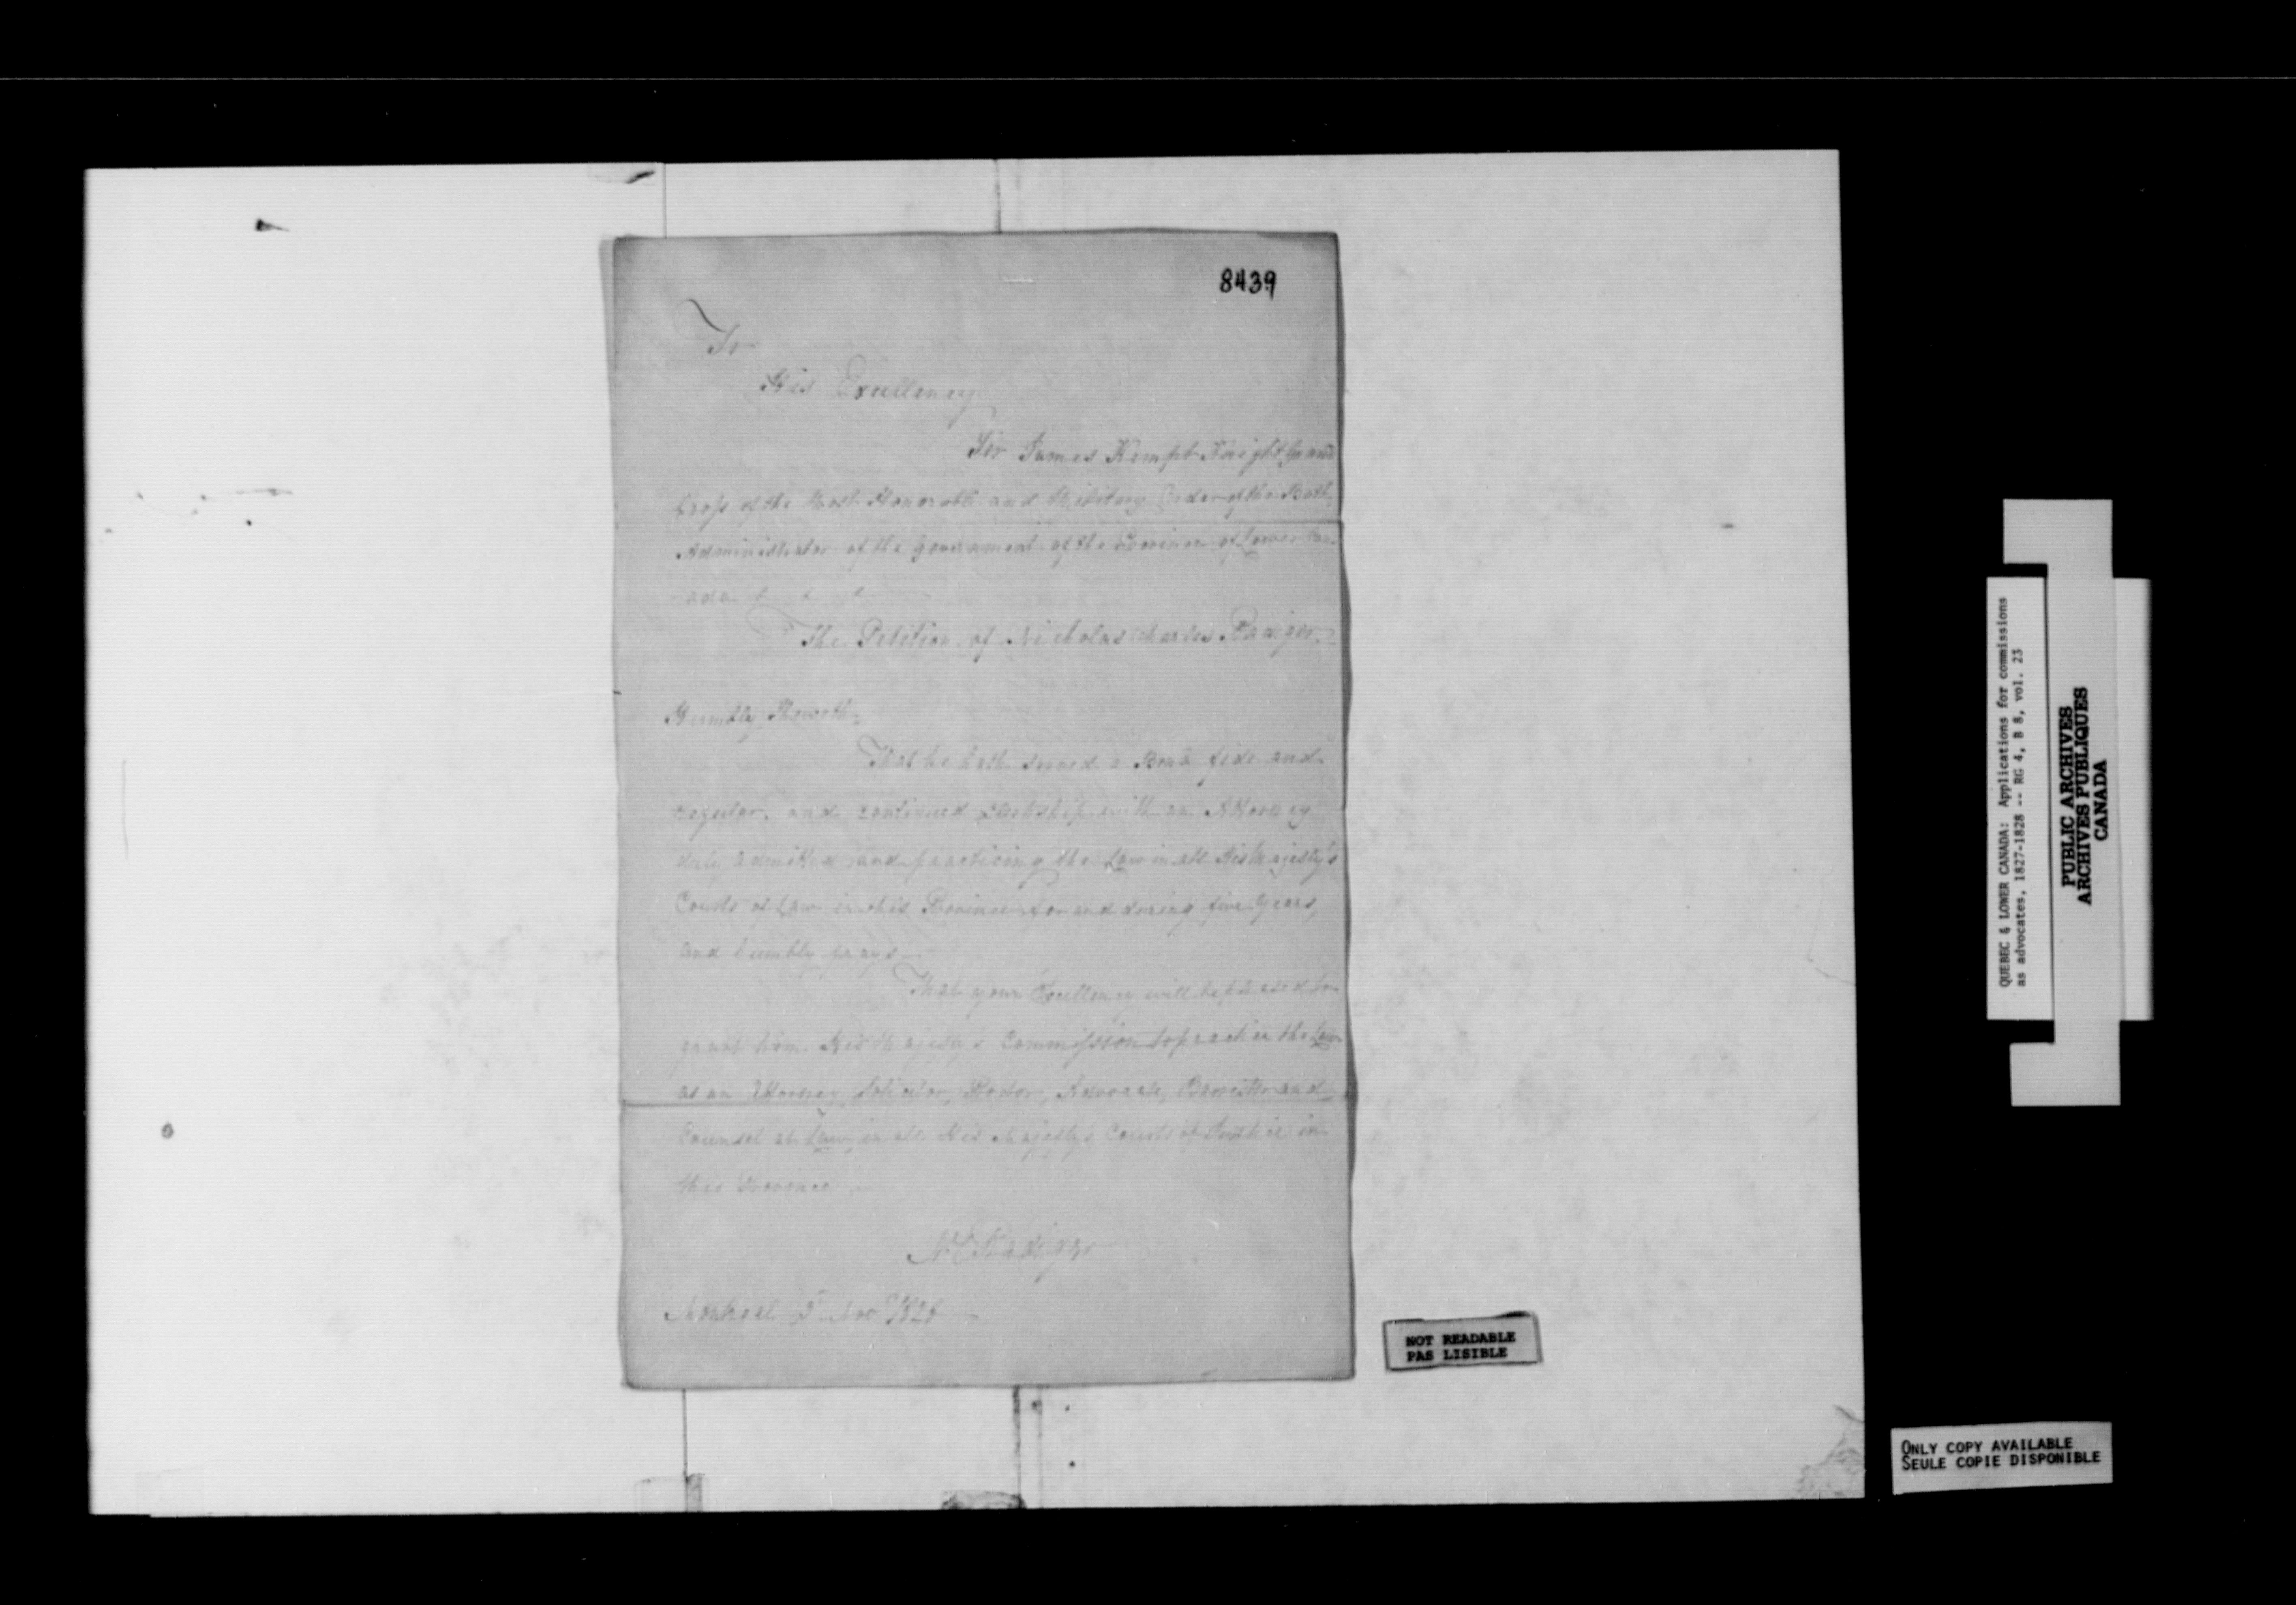 8439
To
His Excellency
Sir James Kempt Knight Grand
Cross of the Most Honorable and Military Order of the Bath,
Administrator of the Government of the Province of Lower Can-
-ada & & &
The Petition of Nicholas Charles Radiger.
Humbly Sheweth:
That he hath served a Bona fide and
regular, and continued Clerkship with an Attorney
duly admitted and practicing the Law in all His Majesty's
Courts of Law in this Province for and during five Years,
and humbly prays —
That your Excellency will be pleased to
grant him His Majesty's Commission to practice the Law
as an Attorney, Solicitor, Proctor, Advocate, Barrister and
Counsel at Law in all His Majesty's Courts of Justice in
this Province —
NC Radiger
Montreal Nov 1828 —
NOT READABLE
PAS LISIBLE
QUEBEC & LOWER CANADA: Applications for commissions
as advocates, 1827-1828 -- RG 4, B 8, vol. 23
PUBLIC ARCHIVES
ARCHIVES PUBLIQUES
CANADA
ONLY COPY AVAILABLE
SEULE COPIE DISPONIBLE